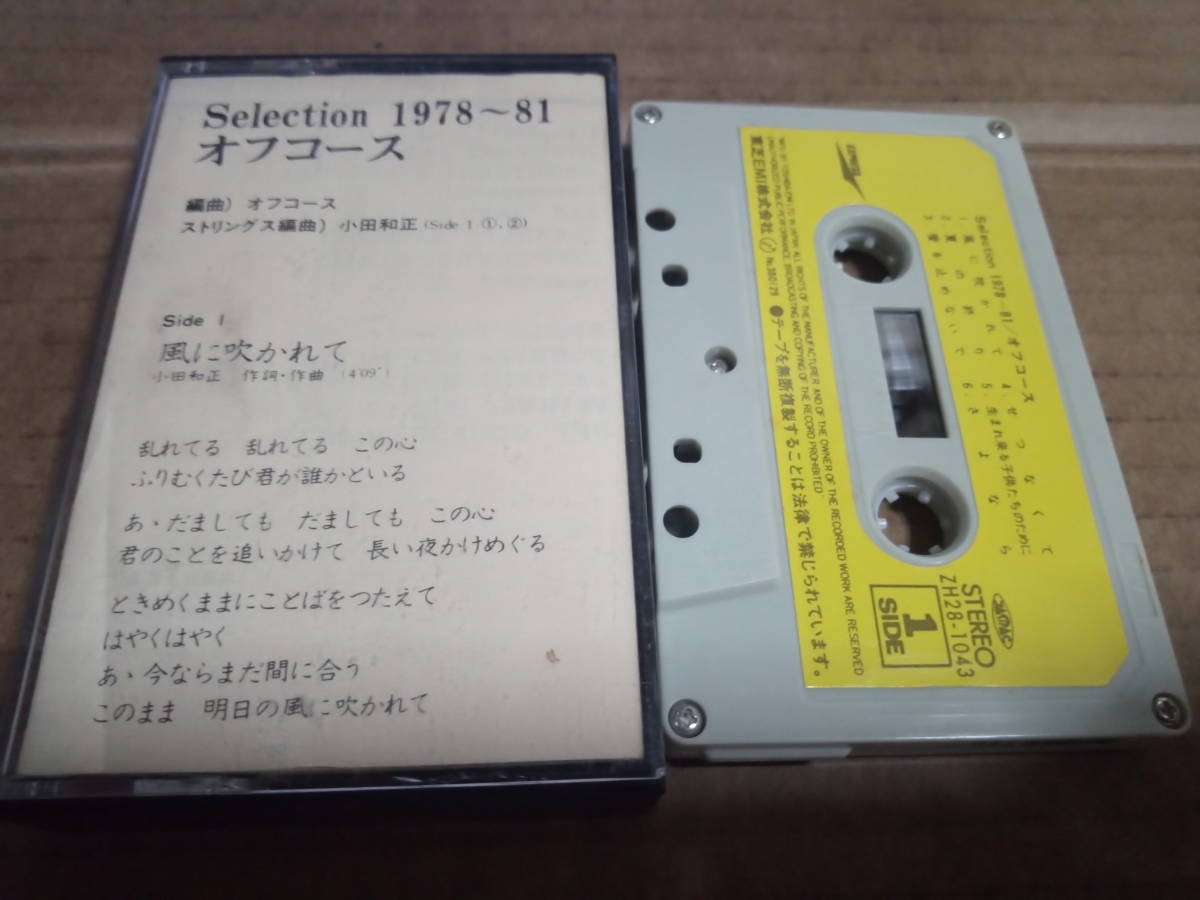 Selection 1978～81
オフコース
編曲) オフコース
ストリングス編曲) 小田和正 (Side 1 ①,②)
Side 1
風に吹かれて
小田和正 作詞・作曲 (4'09")
乱れてる 乱れてる この心
ふりむくたび君が誰かといる
あゝだましても だましても この心
君のことを追いかけて 長い夜かけめぐる
ときめくままにことばをつたえて
はやくはやく
あゝ今ならまだ間に合う
このまま 明日の風に吹かれて
Selection 1978～81/オフコース
1 風に吹かれて 4. せつなくて
2 夏の終り 5. 生まれ来る子供たちのために
3 愛を止めないで 6. さよなら
STEREO
ZH28-1043
1
SIDE
EXPRESS
東芝EMI株式会社 No.380129 ●テープを無断複製することは法律で禁じられています。
MFD. BY TOSHIBA EMI LTD. IN JAPAN. ALL RIGHTS OF THE MANUFACTURER AND OF THE OWNER OF THE RECORDED WORK ARE RESERVED
UNAUTHORIZED PUBLIC PERFORMANCE, BROADCASTING AND COPYING OF THE RECORD PROHIBITED